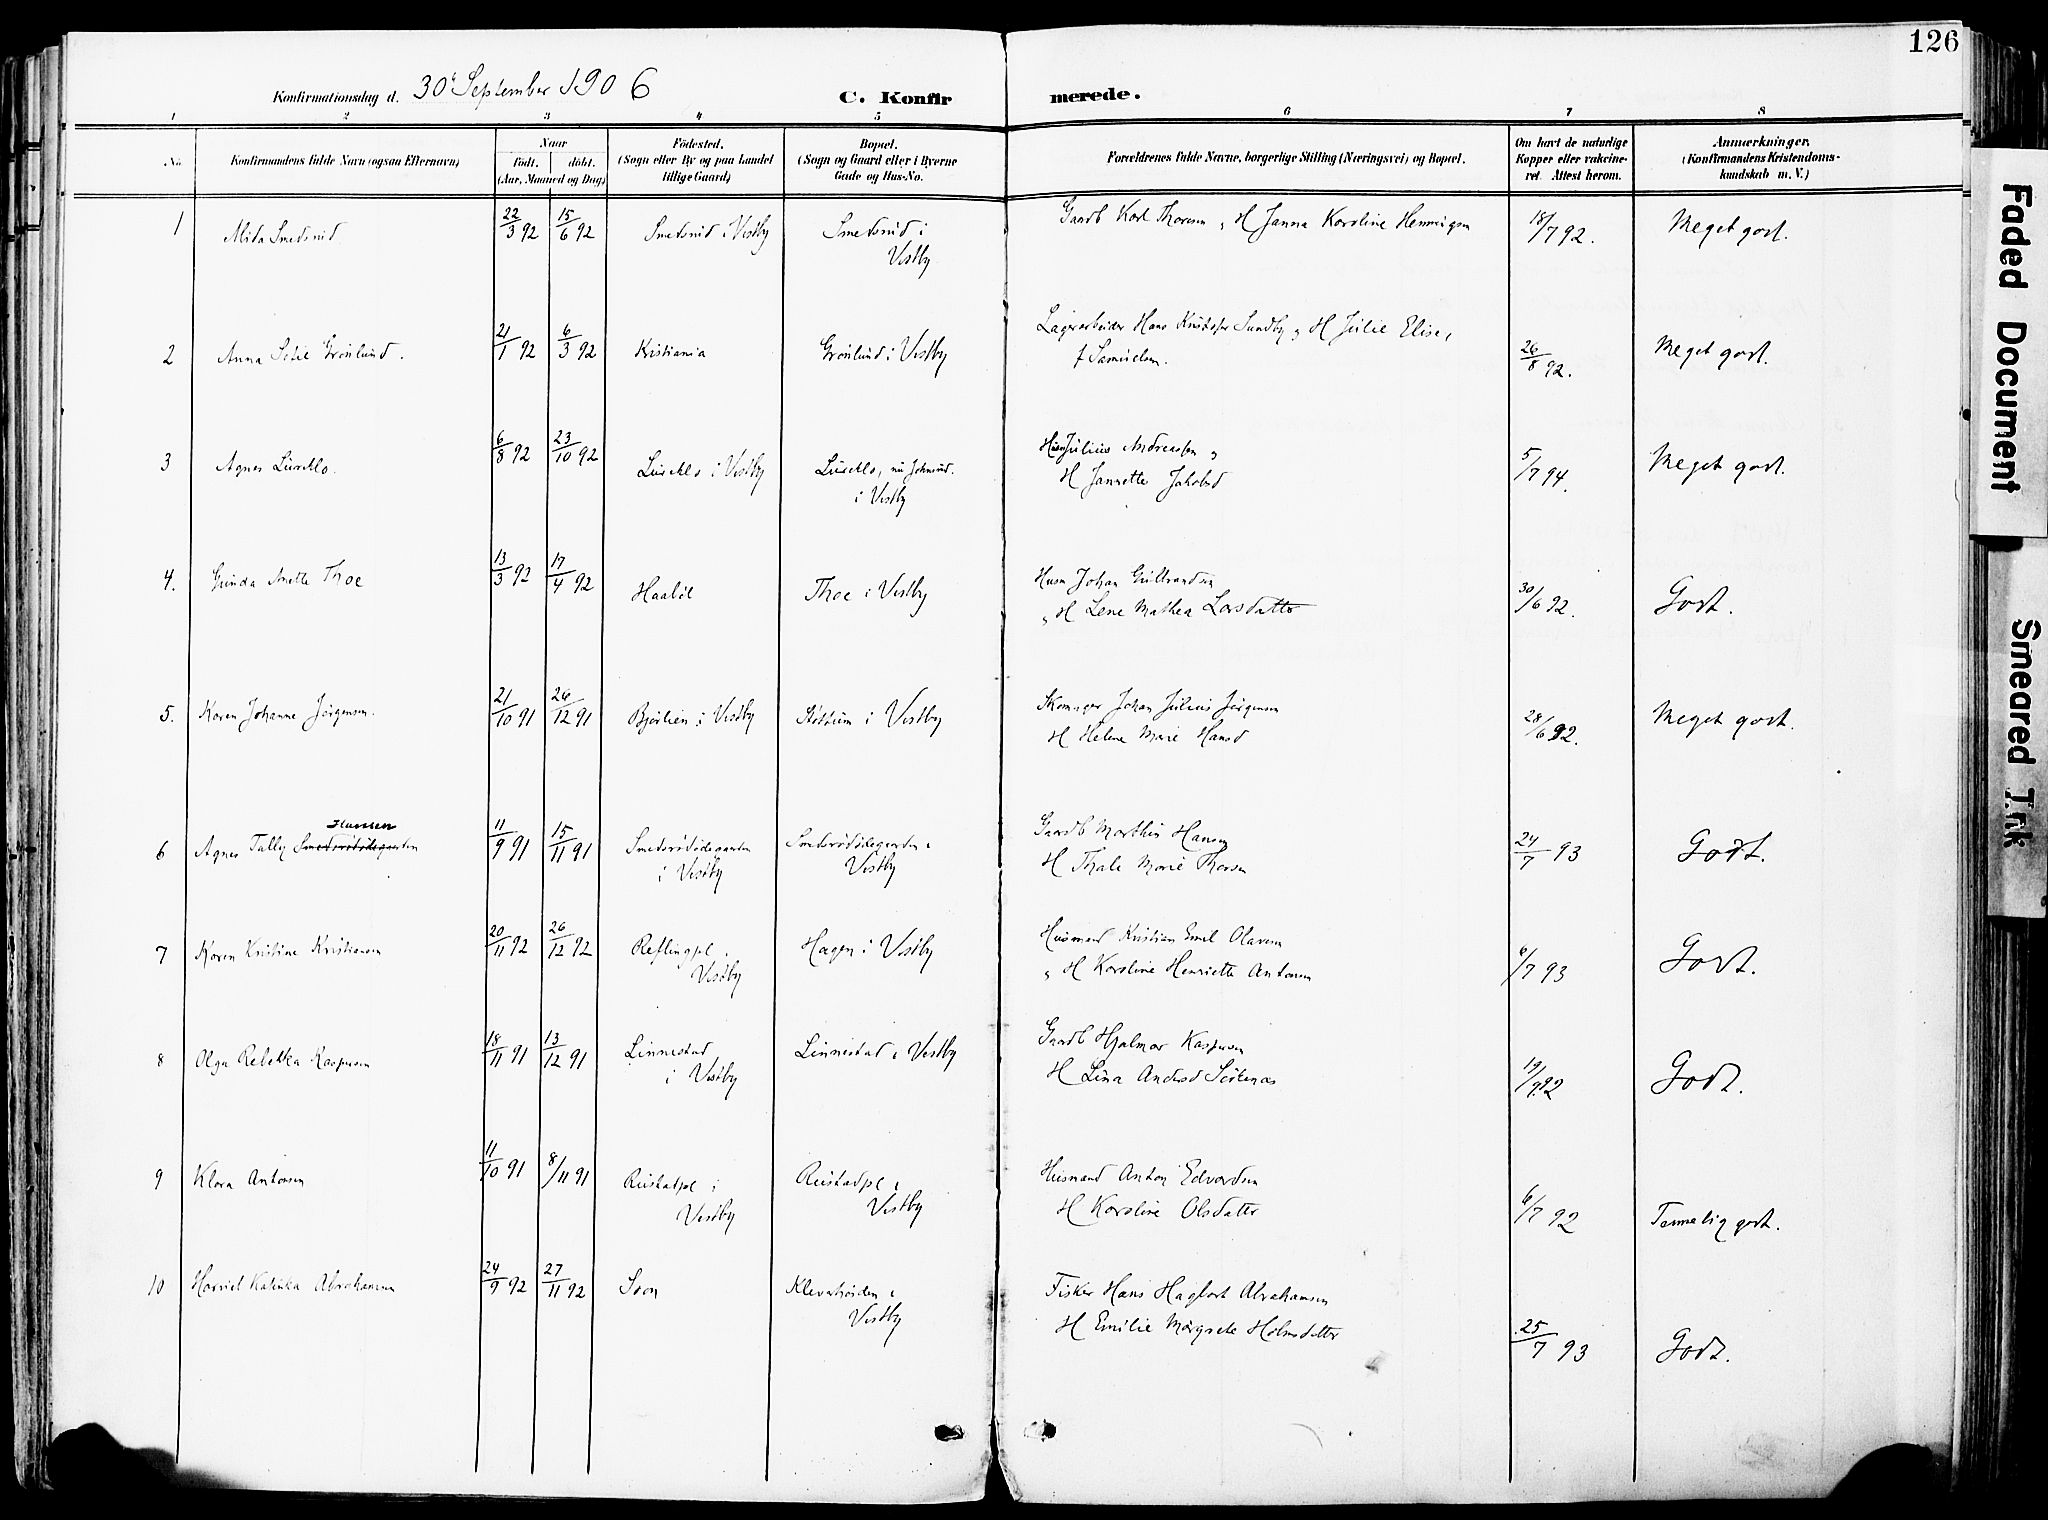 126
Konfirmationsdag d. 30' September 1906 C. Konfirmerede.
1 2 3 4 5 6 7 8
No. Konfirmandens fulde Navn (ogsaa Efternavn) Naar født. døbt. (Aar, Maaned og Dag) Fødested. (Sogn eller By og paa Landet tillige Gaard) Bopæl. (Sogn og Gaard eller i Byerne Gade og Hus-No. Forældrenes fulde Navne, borgerlige Stilling (Næringsvei) og Bopæl. Om havt de naturlige Kopper eller vakcineret. Attest herom. Anmærkninger. (Konfirmandens Kristendomskundskab m. V.)
1 22/3 92 15/6 92 i Vestby i Vestby Gaardb Karl Thoresen H Janna Karoline 18/7 92. Meget godt.
2 Anna Grønlund. 21/1 92 6/3 92 Kristiania Grønlund i Vestby Hans Kristofer Sundby H Julie Elise, f Samuelsen. 26/8 92. Meget godt.
3 Agnes 6/8 92 23/10 92 i Vestby i Vestby Julius Andreassen H Jannette Jakobsd 5/7 94. Meget godt.
4. Gunda Anette Thoe 13/3 92 17/4 92 Haabøl Thoe i Vestby Husm Johan Gulbrandsen H Lene Mathea Larsdatter 30/6 92. Godt.
5. Karen Johanne Jørgensen. 21/10 91 26/12 91 i Vestby Støttum i Vestby Skomager Johan Julius Jørgensen H Helene Marie Hansd 28/6 92. Meget godt.
6 Agnes Hansen 11/9 91 15/11 91 i Vestby i Vestby Gaardb Marthin Hansen H Thale Marie Thorsen 24/7 93 Godt.
7 Karen Kristine Kristiansen 20/11 92 26/12 92 Vestby Hagen i Vestby Husmand Kristian Emil Olavesen H Karoline Henriette Antonsen 6/7 93 Godt.
8 Olga Rebekka Kaspersen 18/11 91 13/12 91 Linnestad i Vestby Linnestad i Vestby Gaardb Hjalmar Kaspersen H Lina Andersd 19/9 92 Godt.
9 Klara Antonsen 11/10 91 8/11 91 Rustadpl i Vestby Rustadpl i Vestby Husmand Anton Edvardsen H Karoline Olsdatter 6/7 92 Temmelig godt.
10 Harriet Katinka Abrahamsen 24/9 92 27/11 92 Soon Vestby Fisker Hans Hagbart Abrahamsen H Emilie Margrete Holmsdatter 25/7 93 Godt.
Faded Document
Smeared Ink